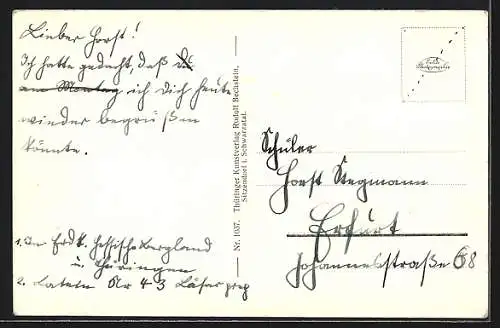 Lieber Horst!
Ich hatte gedacht, daß du
am Montag ich Dich heute
wieder begrüßen
könnte.
1. In Erdk. Hessisches Bergland
u. Thüringen
2. Latein Nr 43
Nr. 1057. Thüringer Kunstverlag Rudolf Bechstein,
Sitzendorf i. Schwarzatal.
Echte
Photographie
Schüler
Horst Stegmann
Erfurt
Johannesstraße 68